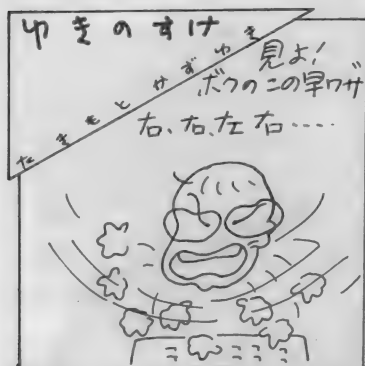 ゆきのすけ
たきもとけずゆき
見よ!
ボクのこの早ワザ
右、右、左 右……